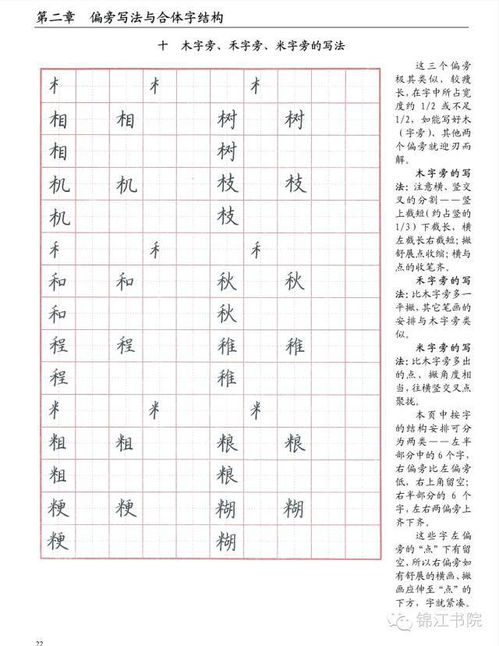 第二章 偏旁写法与合体字结构
十 木字旁、禾字旁、米字旁的写法
木 木 木
相 相 树 树
相 树
机 机 枝 枝
机 枝
禾 禾 禾
和 和 秋 秋
和 秋
程 程 稚 稚
程 稚
米 米 米
粗 粗 粮 粮
粗 粮
粳 粳 糊 糊
粳 糊
这三个偏旁
极其类似，较瘦
长，在字中所占宽
度约 1/2 或不足
1/2，如能写好木
（字旁）、其他两
个偏旁就迎刃而
解。
木字旁的写
法：注意横、竖交
叉的分割——竖
上截短（约占竖的
1/3）下截长，横
左截长右截短；撇
舒展点收缩；横与
点的收笔齐。
禾字旁的写
法：比木字旁多一
平撇，其它笔画的
安排与木字旁类
似。
米字旁的写
法：比木字旁多出
的点、撇角度相
当，往横竖交叉点
聚拢。
本页中按字
的结构安排可分
为两类——左半
部分中的6个字，
右偏旁比左偏旁
低，右上角留空；
右半部分的 6 个
字，左右两偏旁上
齐下齐。
这些字左偏
旁的“点”下有留
空，所以右偏旁如
有舒展的横画、撇
画应伸至“点”的
下方，字就紧凑。
22
锦江书院